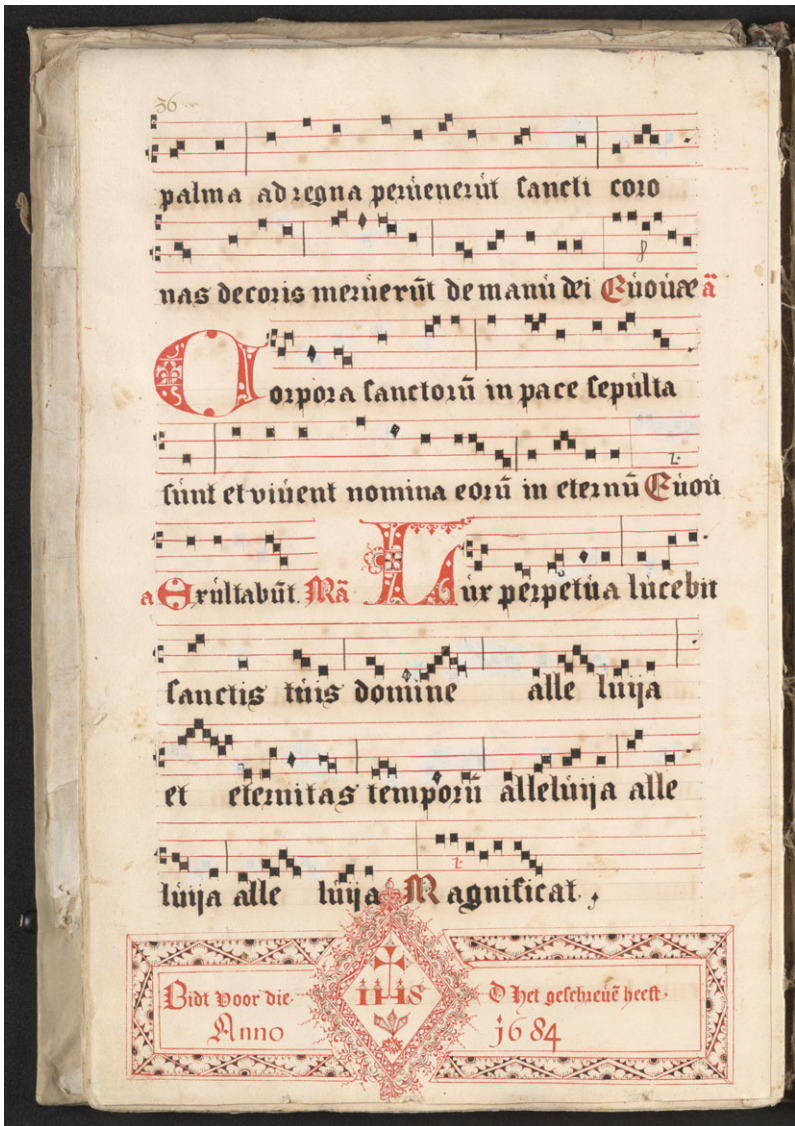 36
palma ad regna peruenerūt sancti coro
nas decoris meruerūt de manu dei Euouae ã
Corpora sanctorū in pace sepulta
sunt et viuent nomina eorū in eternū Euou
a Exultabūt. Mã Lux perpetua lucebit
sanctis tuis domine alle luija
et eternitas temporū alleluija alle
luija alle luija Magnificat,
Bidt voor die IHS D het geschreuē heeft.
Anno 1684